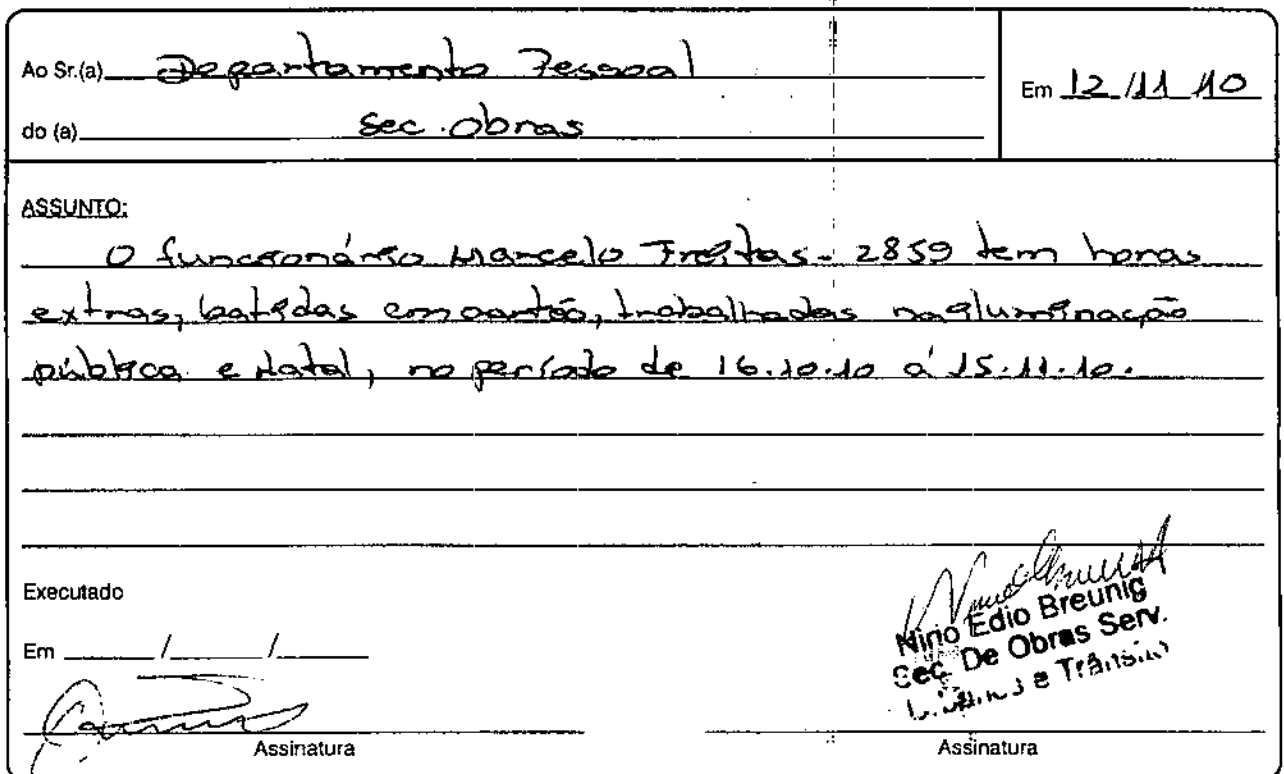 Ao Sr.(a) Departamento Pessoal
Em 12/11/10
do (a) Sec. Obras
ASSUNTO:
O funcionário Marcelo Freitas - 2859 tem horas
extras, batidas em cartão, trabalhadas na iluminação
pública e Natal, no período de 16.10.10 á 15.11.10.
Executado
Em / /
Nirio Edio Breunig
Sec. De Obras Serv.
Urbanos e Trânsito
Assinatura
Assinatura